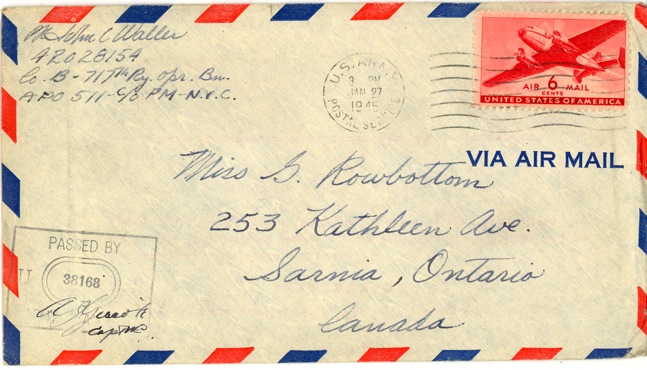 John C Waller
42028154
Co. B - 717th Ry. Opr. Bn.
APO 511 - C/o PM - N.Y.C.
U.S. ARMY
3 PM
JAN 27
1945
POSTAL SERVICE
AIR 6 MAIL
CENTS
UNITED STATES OF AMERICA
VIA AIR MAIL
Miss G. Rowbottom
253 Kathleen Ave.
Sarnia, Ontario
Canada
PASSED BY
38168